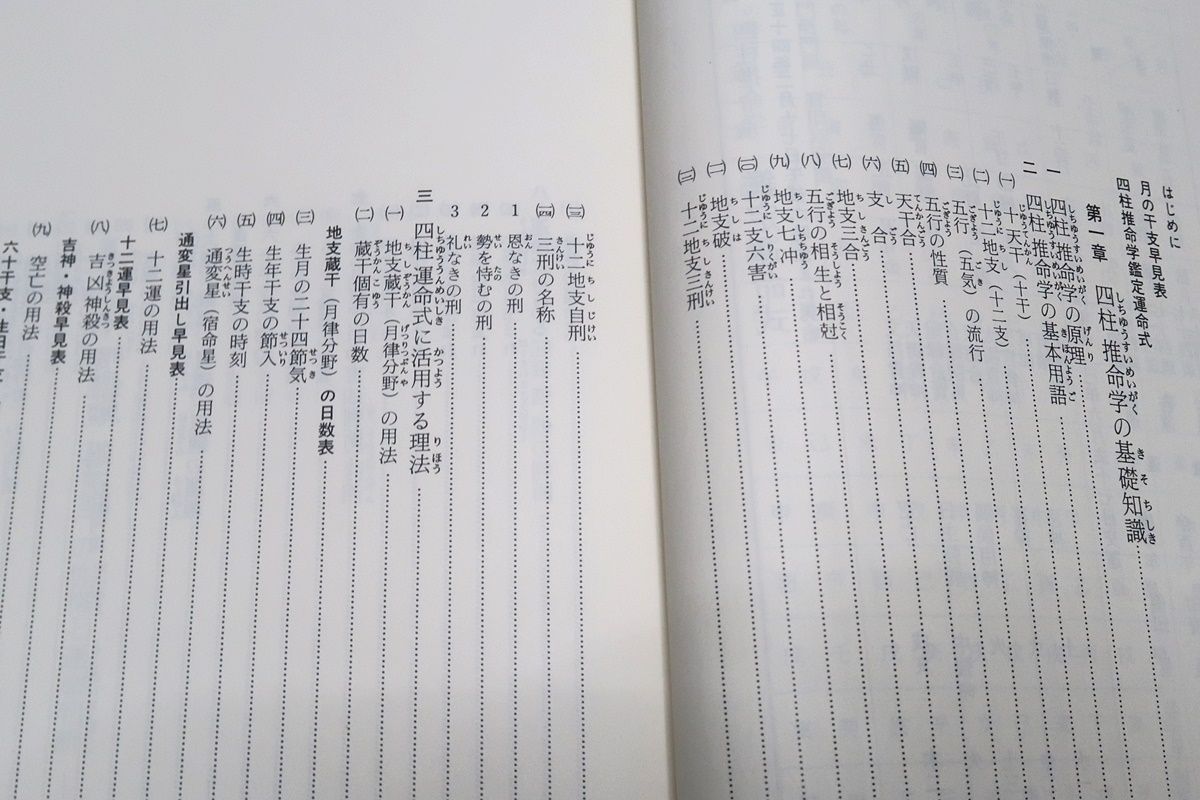 はじめに
月の干支早見表
四柱推命学鑑定運命式
第一章 四柱推命学の基礎知識
一 四柱推命学の原理
二 四柱推命学の基本用語
㈠ 十天干(十干)
㈡ 十二地支(十二支)
㈢ 五行(五気)の流行
㈣ 五行の性質
㈤ 天干合
㈥ 支合
㈦ 地支三合
㈧ 五行の相生と相尅
㈨ 地支七冲
㈩ 十二支六害
(十一) 地支破
(十二) 十二地支三刑
(十三) 十二地支自刑
(十四) 三刑の名称
1 恩なきの刑
2 勢を恃むの刑
3 礼なきの刑
三 四柱運命式に活用する理法
㈠ 地支蔵干(月律分野)の用法
㈡ 蔵干個有の日数
地支蔵干(月律分野)の日数表
㈢ 生月の二十四節気
㈣ 生年干支の節入
㈤ 生時干支の時刻
㈥ 通変星(宿命星)の用法
通変星引出し早見表
㈦ 十二運の用法
十二運早見表
㈧ 吉凶神殺の用法
吉神・神殺早見表
㈨ 空亡の用法
六十干支・生日干支